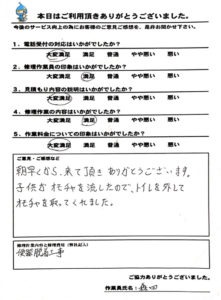 本日はご利用頂きありがとうございました。
今後のサービス向上の為にお客様のご意見ご感想を、是非お聞かせ下さい。
1、電話受付の対応はいかがでしたか?
大変満足 満足 普通 やや悪い 悪い
2、修理作業員の印象はいかがでしたか?
大変満足 満足 普通 やや悪い 悪い
3、見積もり内容の説明はいかがでしたか?
大変満足 満足 普通 やや悪い 悪い
4、修理作業の内容はいかがでしたか?
大変満足 満足 普通 やや悪い 悪い
5、作業料金についての印象はいかがでしたか?
大変満足 満足 普通 やや悪い 悪い
ご意見・ご感想など
朝早くから、来て頂き ありがとうございます。
子供が オモチャを流したので、トイレを外して
オモチャを取ってくれました。
修理作業内容と修理費用(弊社記入)
便器脱着工事
ご協力ありがとうございました。
作業員氏名: